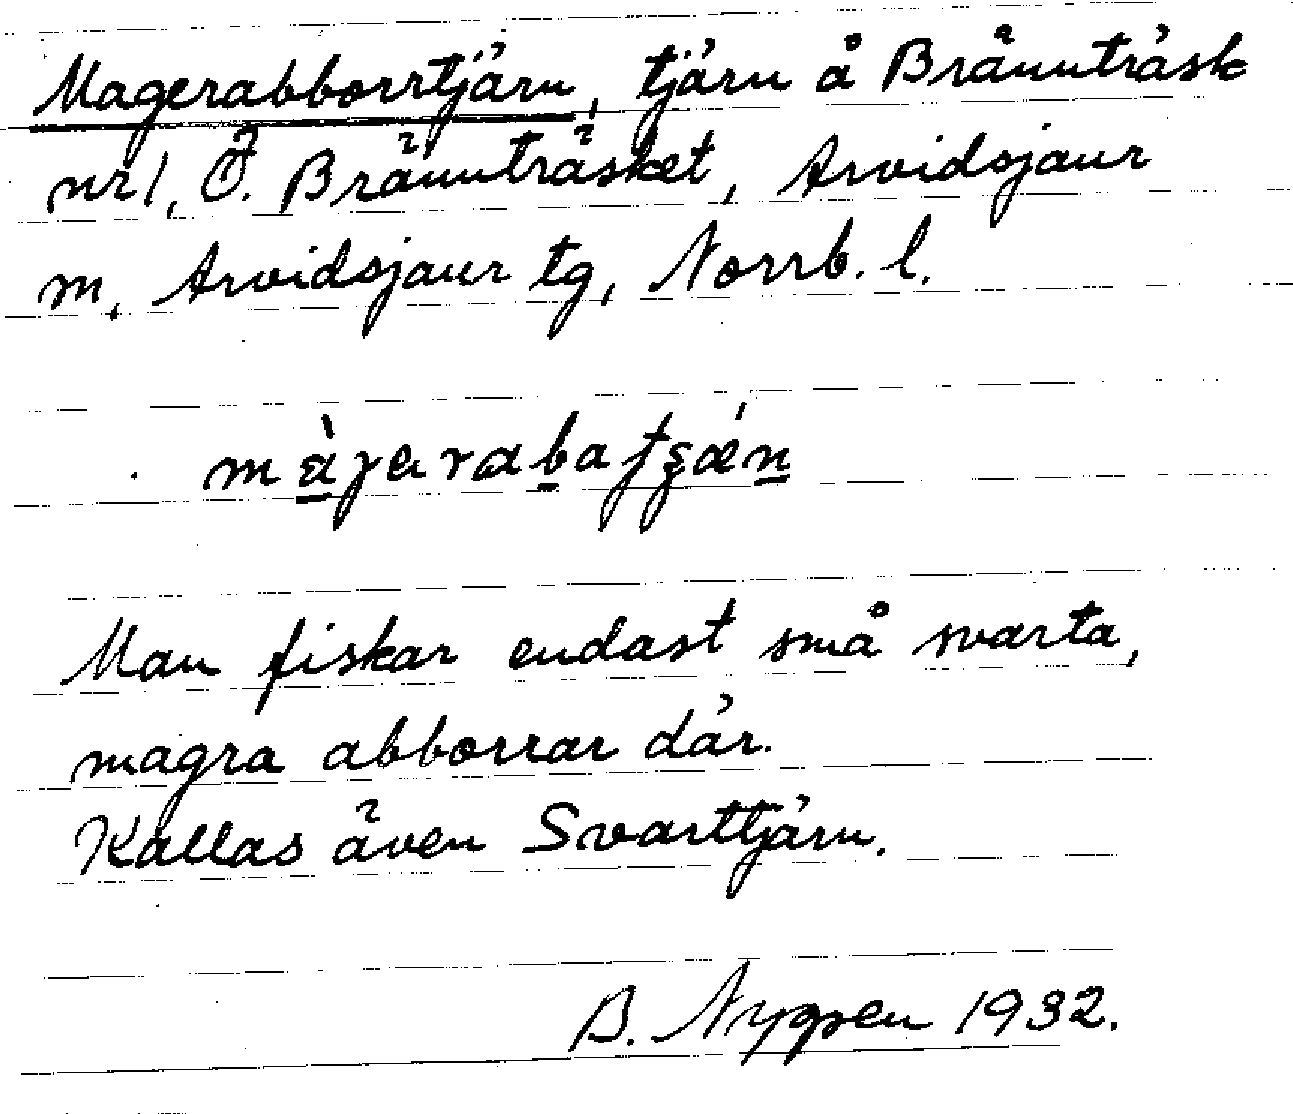 Magerabborrtjärn, tjärn å Brännträsk
nr 1, Ö. Brännträsket, Arvidsjaur
m, Arvidsjaur tg, Norrb. l.
Man fiskar endast små svarta,
magra abborrar där.
Kallas även Svarttjärn.
B. Nygren 1932.